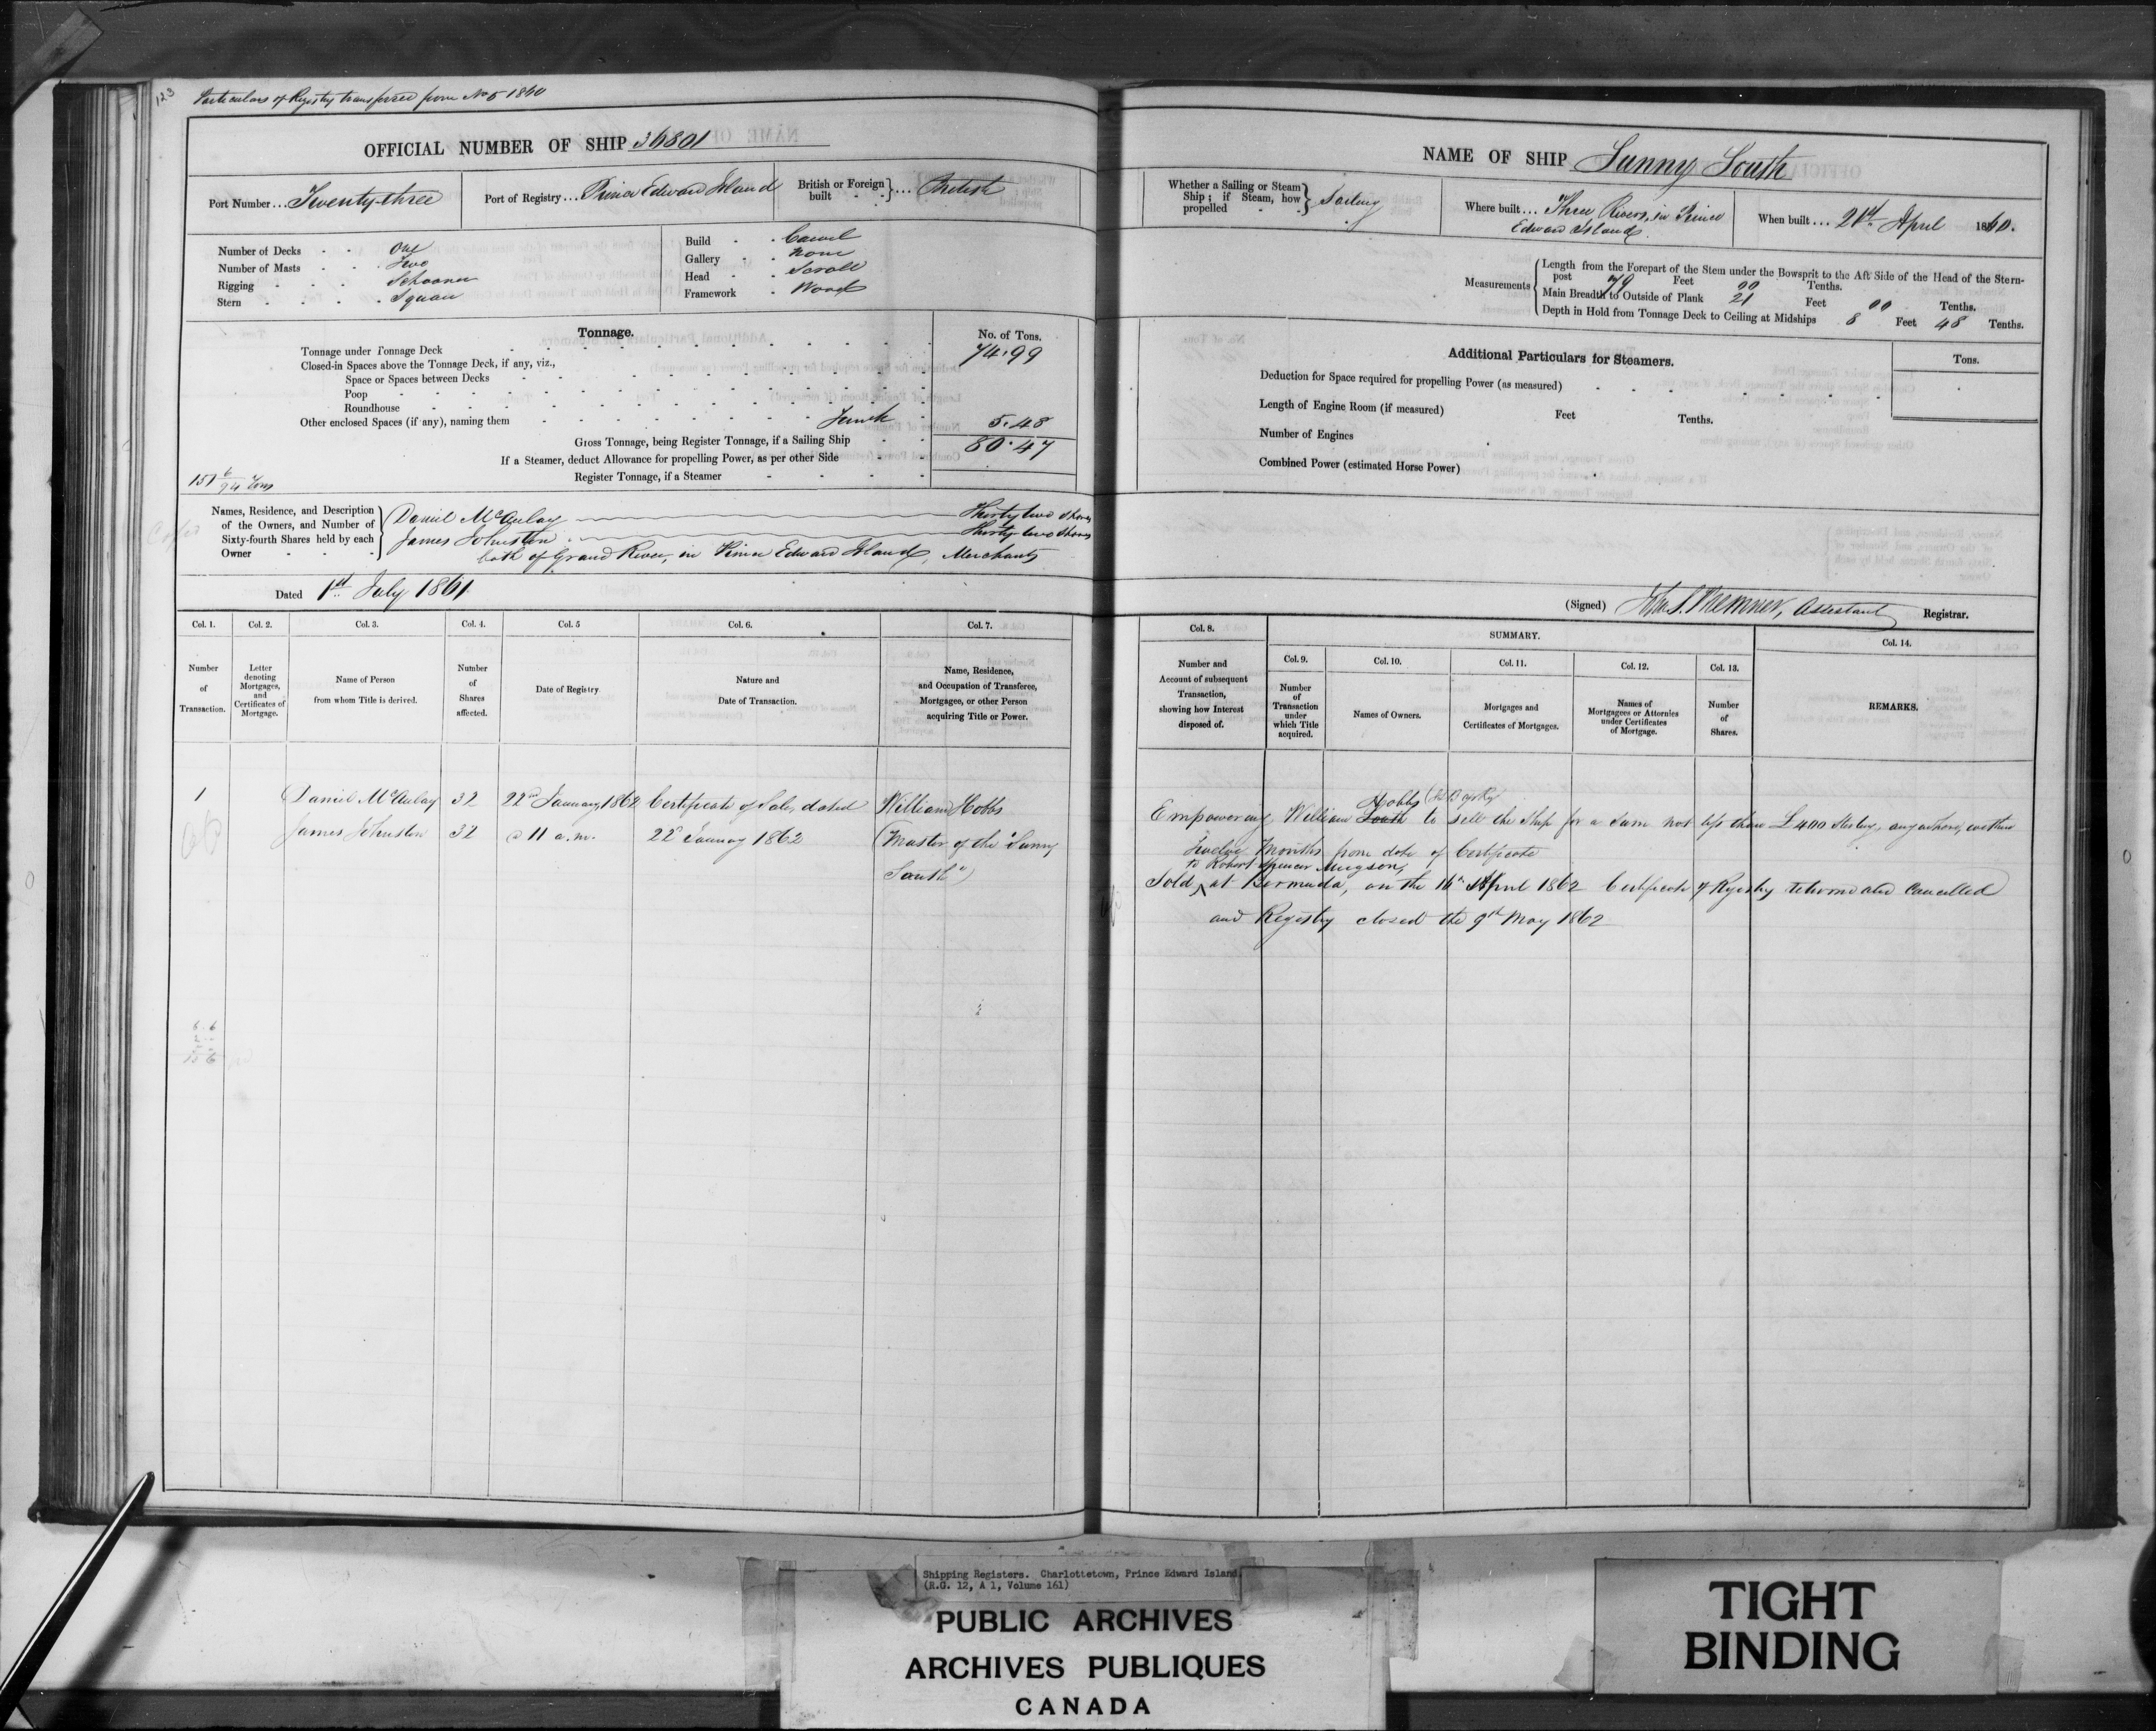 123
Particulars of Registry transferred from No 5 1860
OFFICIAL NUMBER OF SHIP 36801
Port Number ... Twenty-three
Port of Registry ... Prince Edward Island
British or Foreign built } ... British
Number of Decks - - One
Number of Masts - - Two
Rigging - - - Schooner
Stern - - - - Square
Build - - Carvel
Gallery - - None
Head - - Scroll
Framework - Wood
Tonnage.
No. of Tons.
Tonnage under Tonnage Deck 74.99
Closed-in Spaces above the Tonnage Deck, if any, viz.,
Space or Spaces between Decks
Poop
Roundhouse
Other enclosed Spaces (if any), naming them 5.48
Gross Tonnage, being Register Tonnage, if a Sailing Ship 80.47
If a Steamer, deduct Allowance for propelling Power, as per other Side
Register Tonnage, if a Steamer
151 6/94 Tons
Names, Residence, and Description of the Owners, and Number of Sixty-fourth Shares held by each Owner
Daniel McAulay Thirty two Shares
James Johnston Thirty-two Shares
both of Grand River, in Prince Edward Island, Merchants
Dated 1st July 1861
Col. 1. Col. 2. Col. 3. Col. 4. Col. 5 Col. 6. Col. 7.
Number of Transaction.
Letter denoting Mortgages, and Certificates of Mortgage.
Name of Person from whom Title is derived.
Number of Shares affected.
Date of Registry
Nature and Date of Transaction.
Name, Residence, and Occupation of Transferee, Mortgagee, or other Person acquiring Title or Power.
1 Daniel McAulay 32 22nd January 1862 Certificate of Sale, dated William Hobbs
James Johnston 32 @ 11 a.m. 22d January 1862 (Master of the "Sunny
South")
NAME OF SHIP Sunny South
Whether a Sailing or Steam Ship; if Steam, how propelled } Sailing
Where built ... Three Rivers, in Prince
Edward Island.
When built ... 21st April 1860.
Measurements
Length from the Forepart of the Stem under the Bowsprit to the Aft Side of the Head of the Stern-
post 79 Feet 00 Tenths.
Main Breadth to Outside of Plank 21 Feet 00 Tenths.
Depth in Hold from Tonnage Deck to Ceiling at Midships 8 Feet 48 Tenths.
Additional Particulars for Steamers.
Tons.
Deduction for Space required for propelling Power (as measured)
Length of Engine Room (if measured) Feet Tenths.
Number of Engines
Combined Power (estimated Horse Power)
(Signed) Assistant Registrar.
Col. 8. SUMMARY. Col. 14.
Col. 9. Col. 10. Col. 11. Col. 12. Col. 13.
Number and Account of subsequent Transaction, showing how Interest disposed of.
Number of Transaction under which Title acquired.
Names of Owners.
Mortgages and Certificates of Mortgages.
Names of Mortgagees or Attornies under Certificates of Mortgage.
Number of Shares.
REMARKS.
Hobbs
Empowering William South to sell the Ship for a sum not less than £400 Sterling, anywhere, within
Twelve Months from date of Certificate
to Robert Spencer
Sold at Bermuda, on the 16th April 1862 Certificate of Registry returned and Cancelled
and Registry closed the 9th May 1862
Shipping Registers. Charlottetown, Prince Edward Island.
(R.G. 12, A 1, Volume 161)
PUBLIC ARCHIVES
ARCHIVES PUBLIQUES
CANADA
TIGHT
BINDING